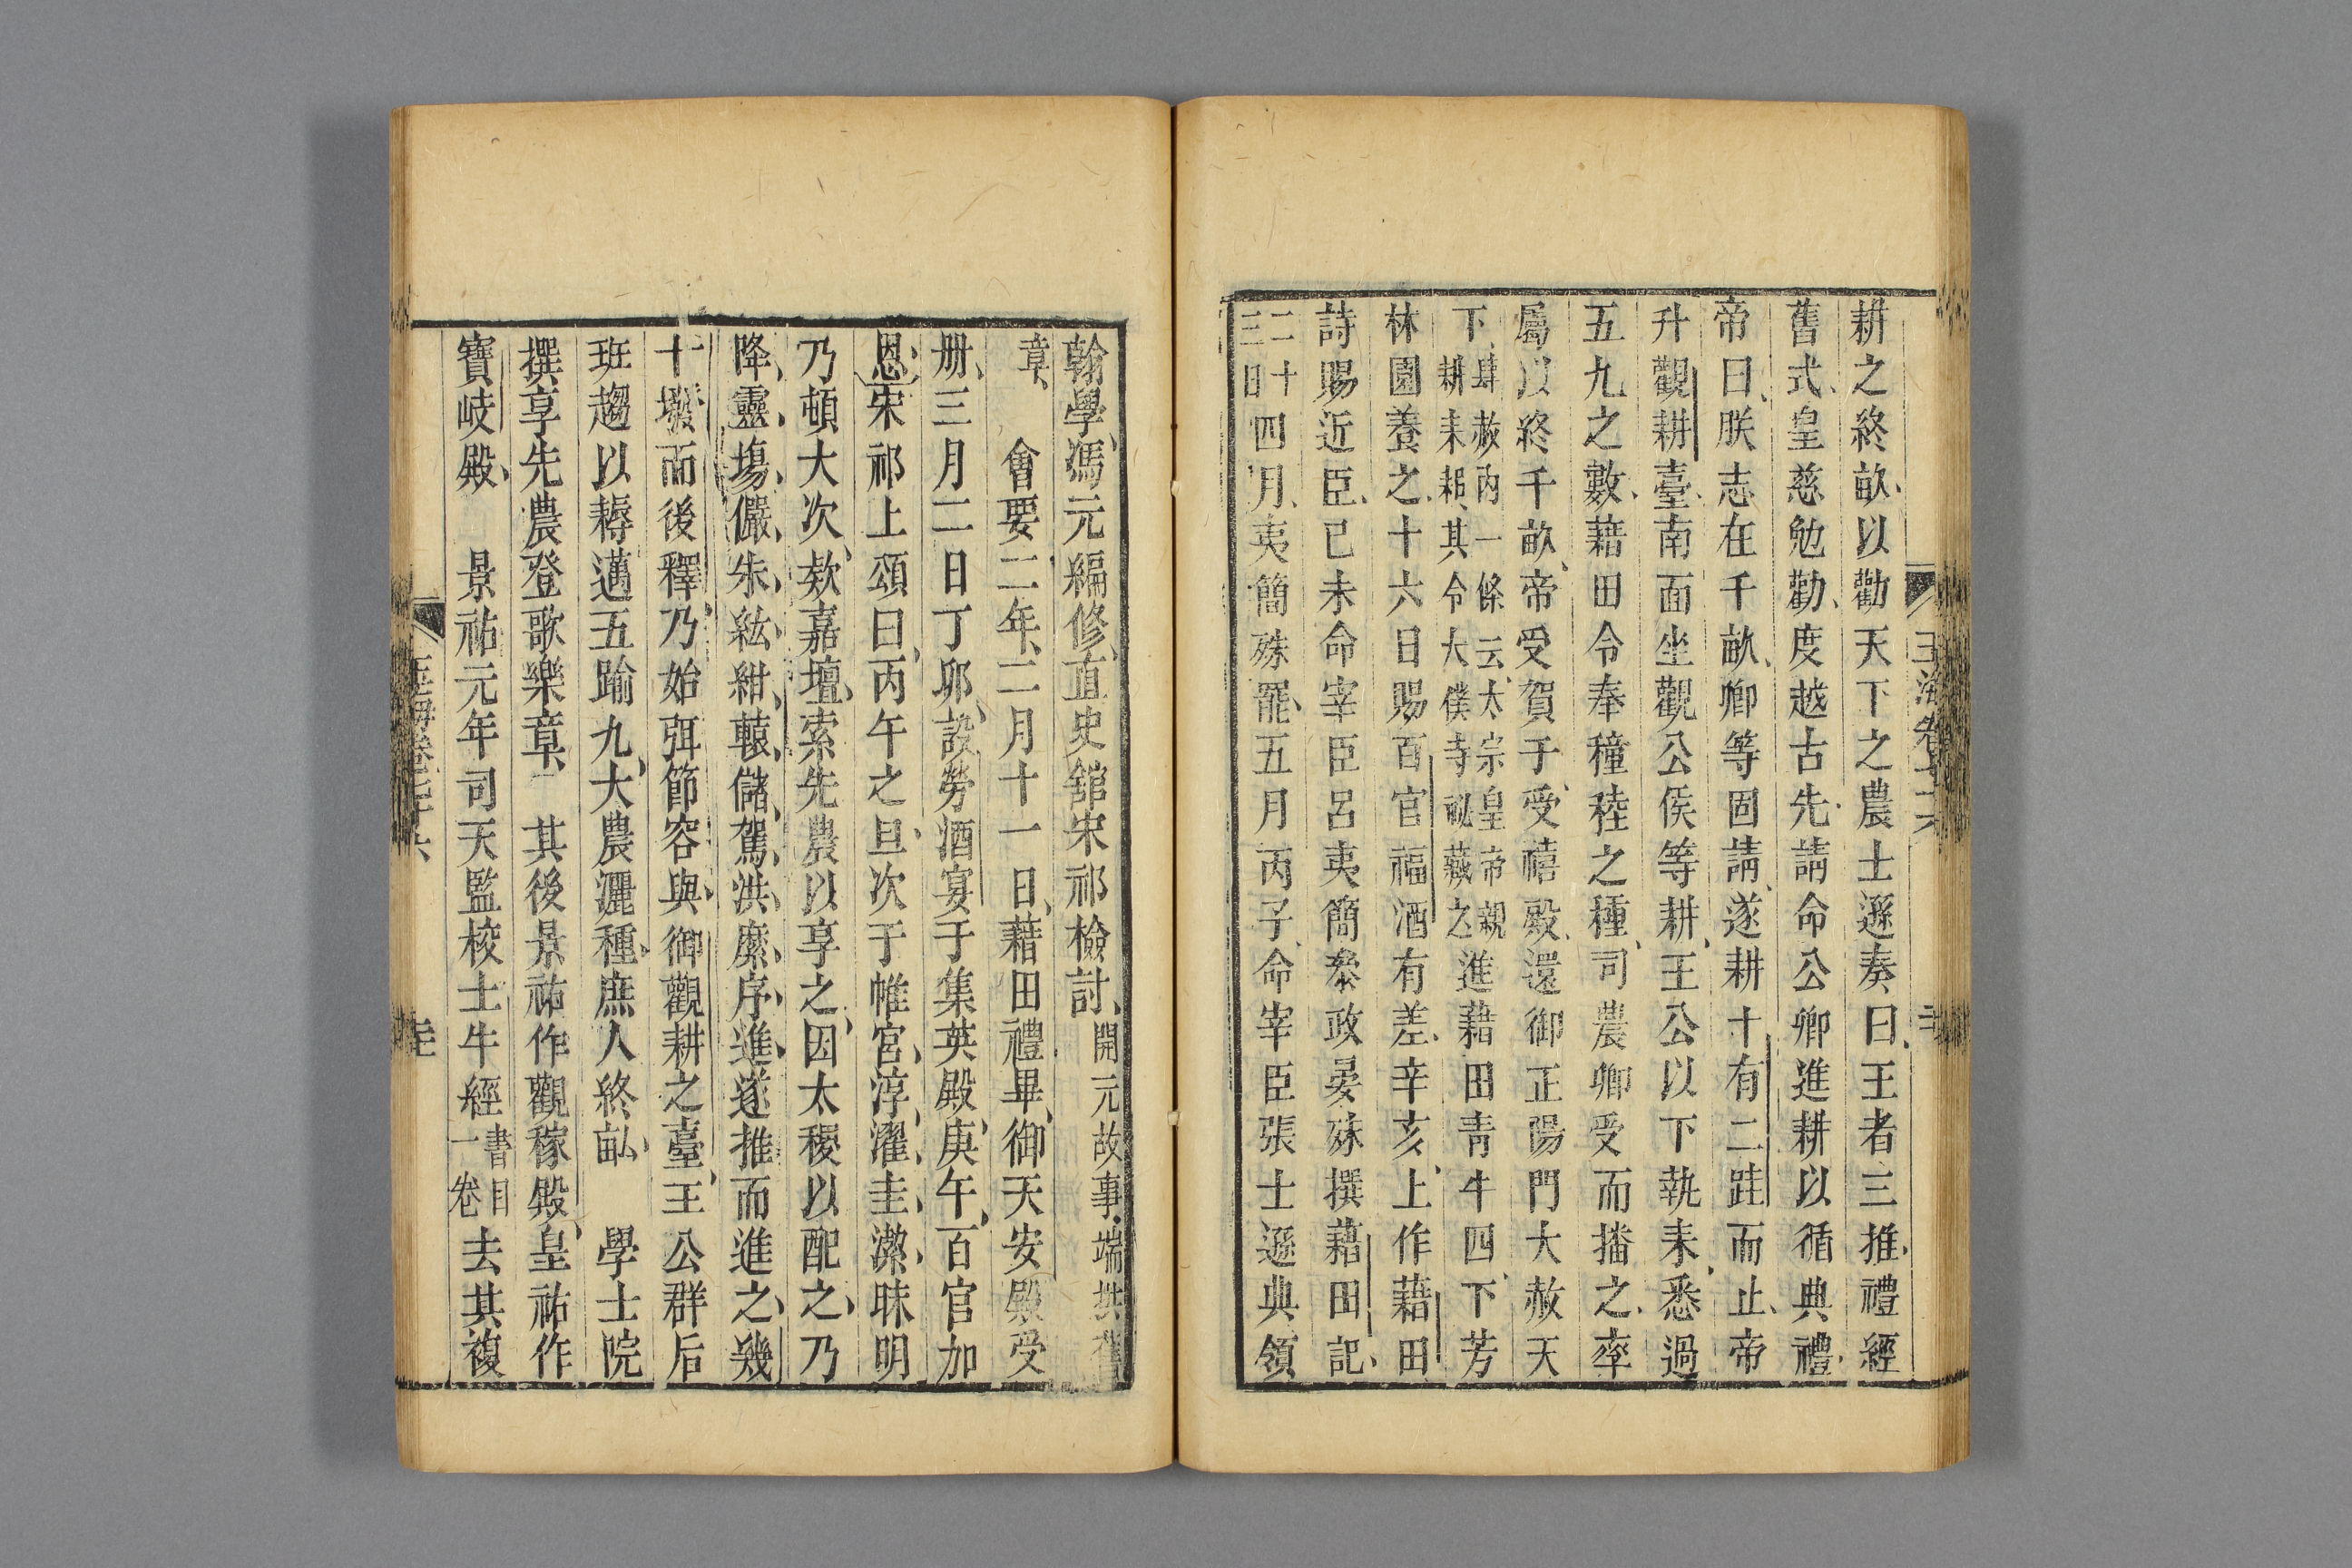 耕之終畝以勸天下之農士遜奏曰王者三推禮經
舊式皇慈勉勸度越古先請命公卿進耕以循典禮
帝曰朕志在千畝卿等固請遂耕十有二畦而止帝
升觀耕臺南面坐觀公侯等耕王公以下執耒悉過
五九之數藉田令奉穜稑之種司農卿受而播之率
屬以終千畝帝受賀于受禧殿還御正陽門大赦天
下肆赦內一條云太宗皇帝親耕耒耜其令大僕寺祕藏之進藉田青牛四下芳
林園養之十六日賜百官福酒有差辛亥上作藉田
詩賜近臣已未命宰臣呂夷簡叅政晏殊撰藉田記
二十三日四月夷簡殊罷五月丙子命宰臣張士遜典領
玉海卷
翰學馮元編修直史舘宋祁檢討開元故事端拱
章 會要二年二月十一日藉田禮畢御天安殿受
册三月二日丁卯設勞酒宴于集英殿庚午百官加
恩宋祁上頌曰丙午之旦次于帷宮淳濯圭潔昧明
乃頓大次欻嘉壇索先農以享之因太稷以配之乃
降靈塲儼朱紘紺轅儲駕洪縻序進遂推而進之幾
十墢而後釋乃始弭節容與御觀耕之臺王公群后
班趨以耨邁五踰九大農灑種庶人終畝 學士院
撰享先農登歌樂章 其後景祐作觀稼殿皇祐作
寶岐殿 景祐元年司天監校土牛經書目一卷去其複
玉海卷七十六